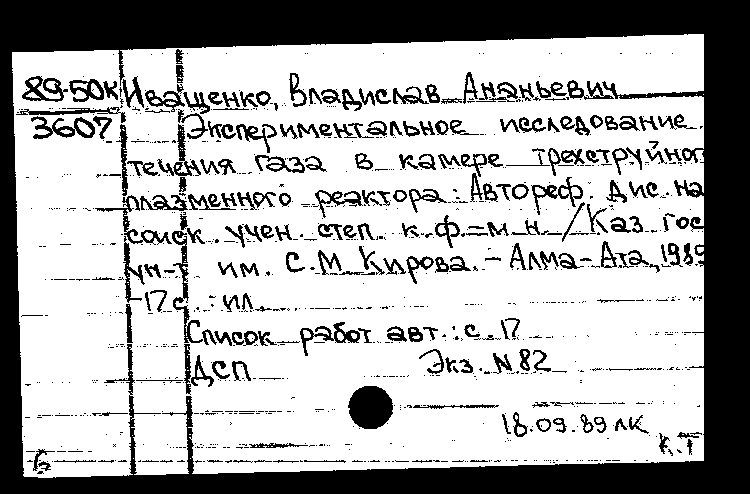 89-50к Иващенко, Владислав Ананьевич
3607 Экспериментальное исследование
течения газа в камере трехструйног
плазменного реактора : Автореф. дис. на
соиск. учен. степ. к.ф.=м.н. / Каз. гос
ун-т им. С.М. Кирова. - Алма-Ата, 1989
-17с. : ил.
Список работ авт.: с. 17
ДСП Экз. N 82
18.09.89 лк
К.Т
Б